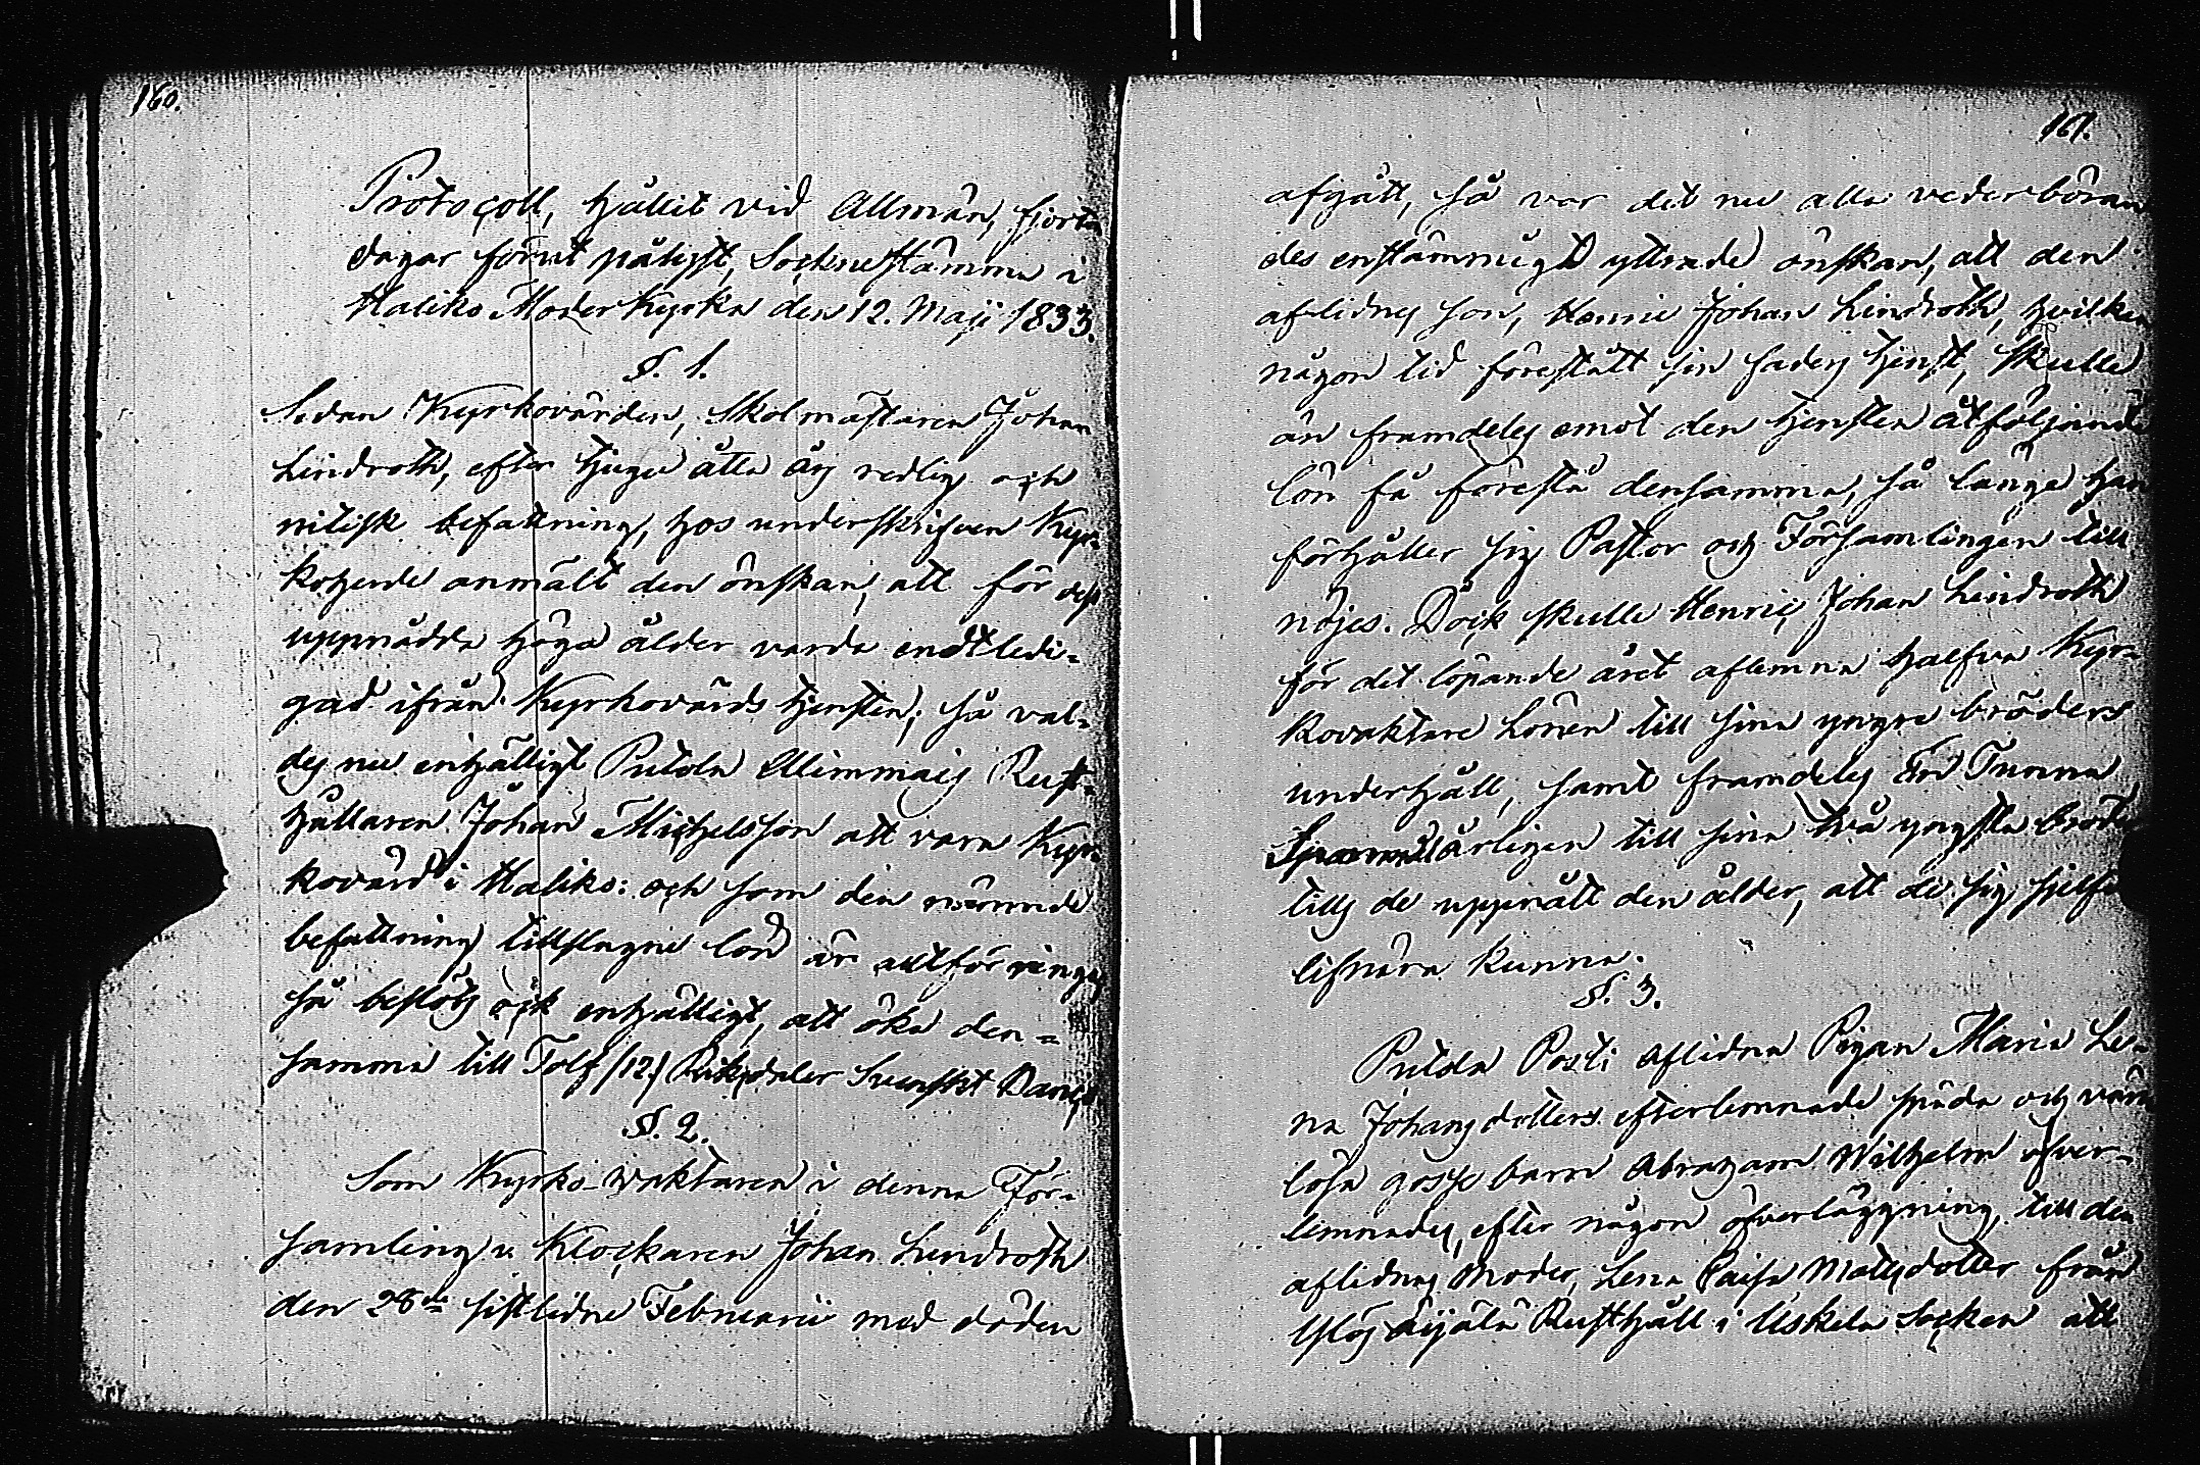 160.
Protocoll, hållit vid Allmän, fjorton
dagar förut pålyst, Sockne stämma i
Haliko Moder Kyrka den 12. Maji 1833.
§. 1.
Sedan Kyrkovärden, Skolmästaren Johan
Lindroth, efter tjugu åtta års redlig och
nitisk befattning, hos underskrifven Kyr-
koherde anmält den önskan, att för dess
uppnådda höga ålder varda endtledi-
gad ifrån Kyrkovärds tjensten; så val-
des nu enhälligt Putola Ollimmais Rust-
hållaren Johan Michelsson att vara Kyr-
kovärd i Haliko: och som den nämnde
befattning tillslagne lön är alltför ringa,
så beslöts ock enhälligt, att öka den-
samma till Tolf (12.) Riksdaler Svenskt Banco.
§. 2.
Som Kyrko-vaktaren i denna För-
samling v. Klockaren Johan Lindroth
den 28de sistledne Februarii med döden
161.
afgått, så var det nu alla vederböran-
des enstämmigt yttrade önskan, att den
aflidnes son, Henric Johan Lindroth, hvilken
någon tid förestått sin faders tjenst, skulle
än framdeles emot den tjensten åtföljande
lön få förestå densamma, så länge han
förhåller sig Pastor och Församlingen till
nöjes. Dock skulle Henric Johan Lindroth
för det löpande året aflemna halfva Kyr-
kovaktare Lönen till sina yngre bröders
underhåll, samt framdeles En Tunna
Spannmål årligen till sina två yngsta bröder
tills de uppnått den ålder, att de sig sjelfva
lifnära kunna.
§. 3.
Putola Posti aflidna Pigan Maria Le-
na Johansdotters efterlemnade späda och värn-
lösa gosse barn Abraham Wilhelm öfver-
lemnades, efter någon öfverläggning, till den
aflidnas Moder, Lena Caisa Matsdotter från
Rusthåll i Uskela Socken att